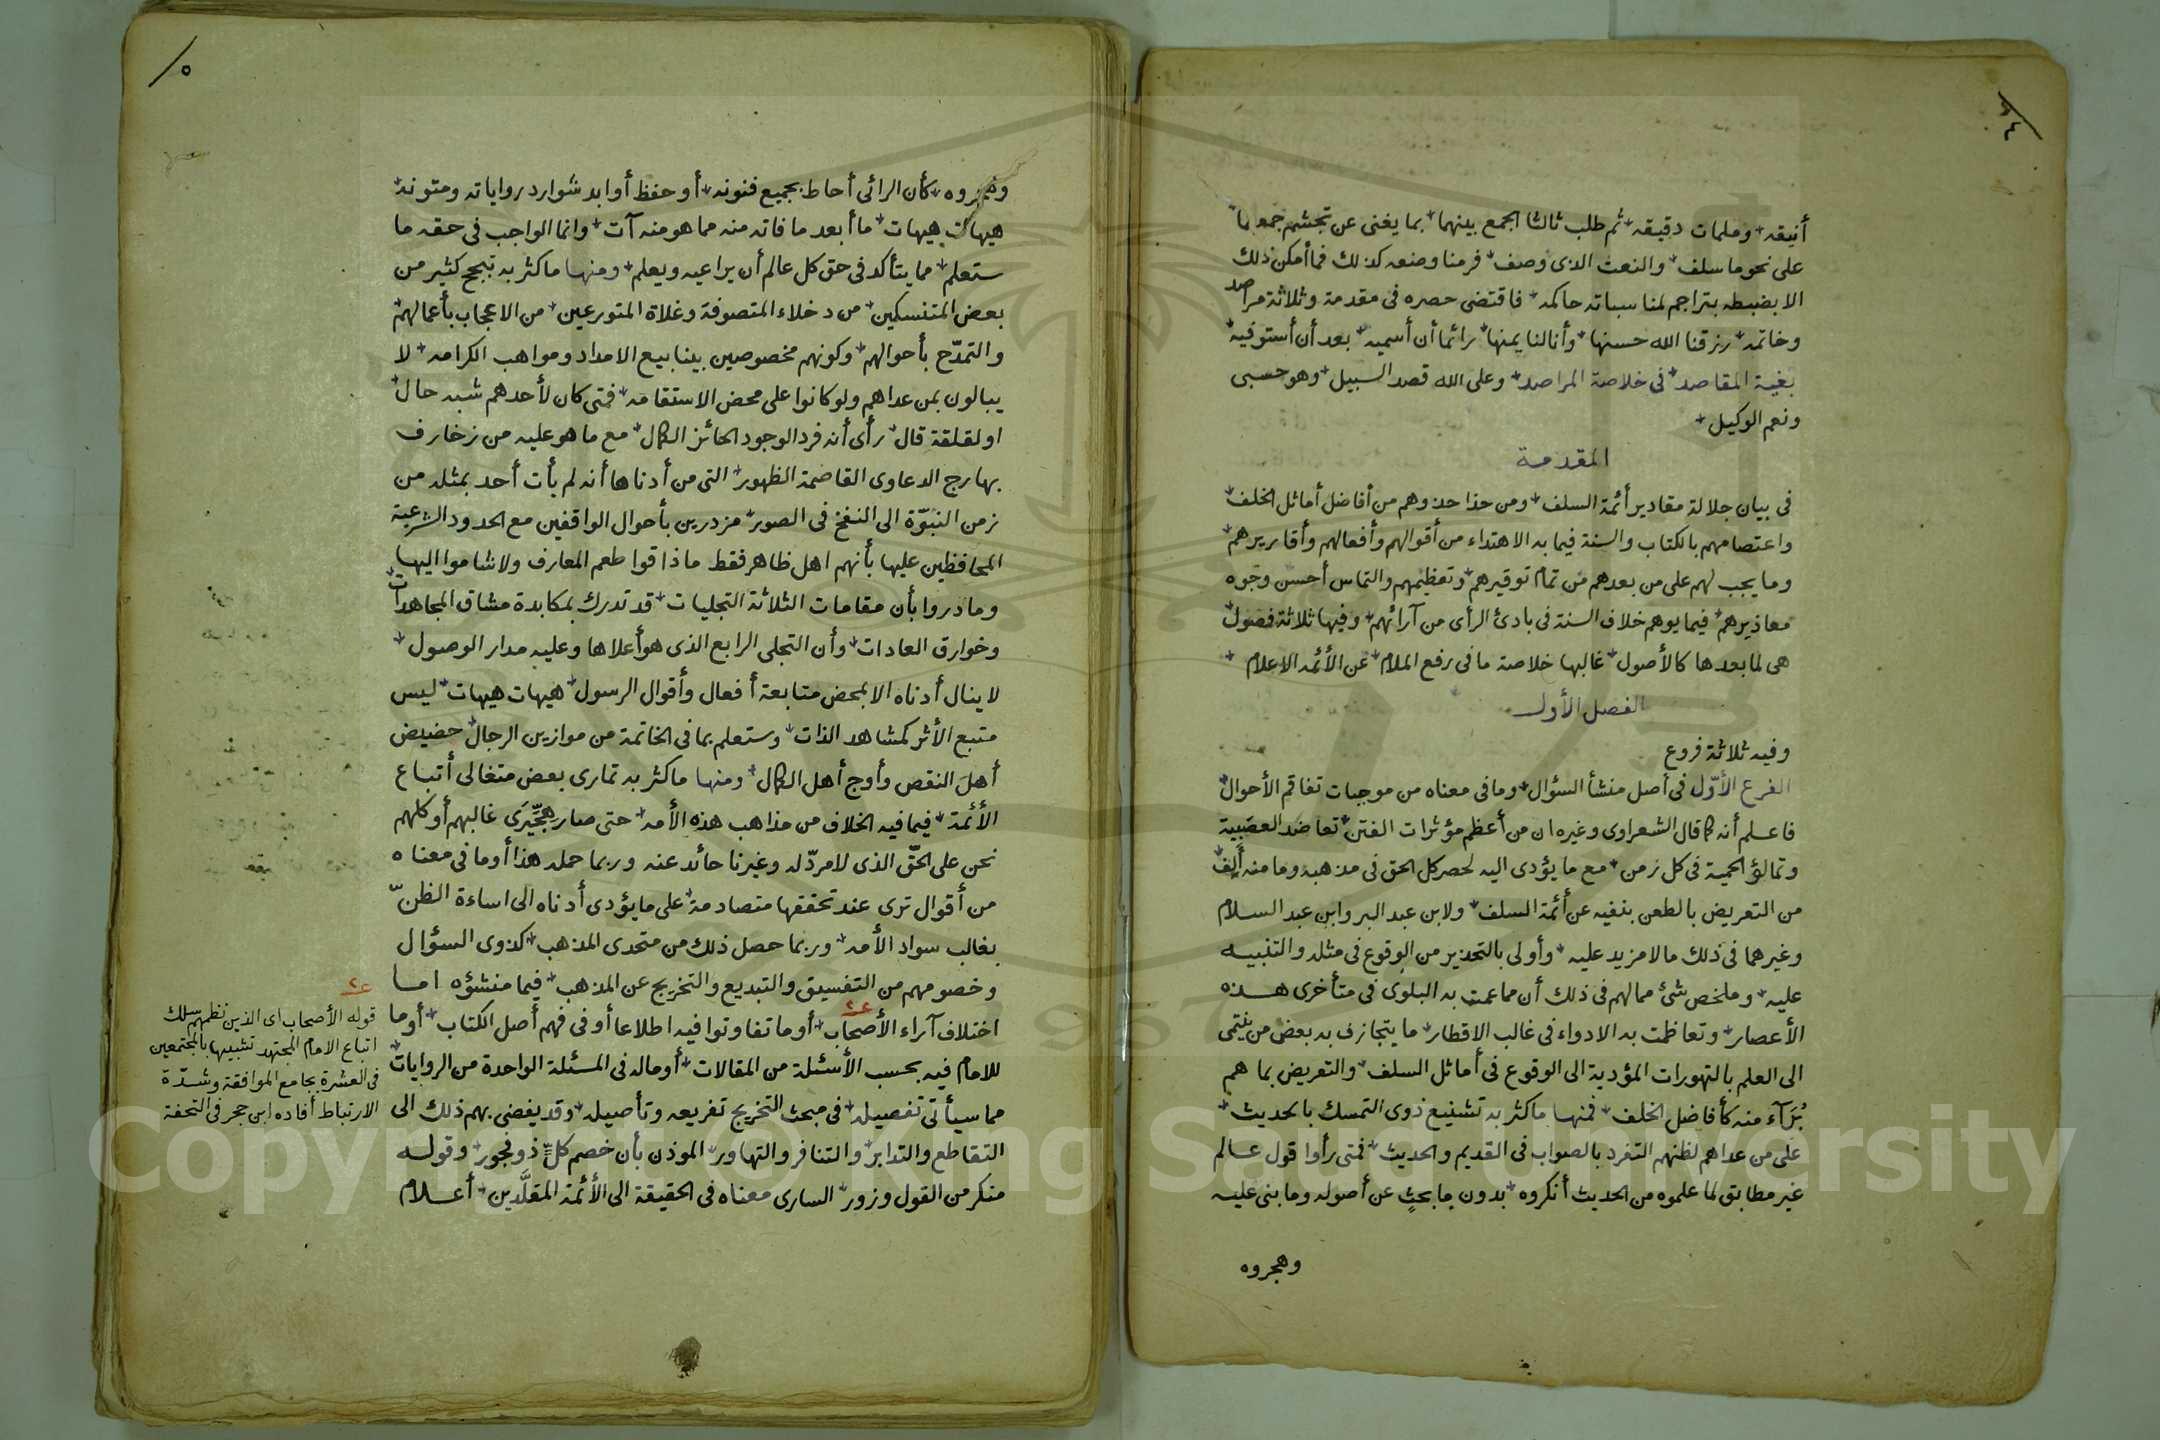 ٤
أنيقه وملمات دقيقه ثم طلب ثالثا الجمع بينهما بما يغنى عن تجشم جمعها
على نحو ما سلف والنعت الذى وصف فرمنا وضعه كذلك فما أمكن ذلك
الا بضبطه بتراجم لمناسباته حاكمه فاقتضى حصره فى مقدمة وثلاثة مراصد
وخاتمه رزقنا الله حسنها وأنالنا يمنها رائما أن أسميه بعد أن أستوفيه
بغية المقاصد فى خلاصة المراصد وعلى الله قصد السبيل وهو حسبى
ونعم الوكيل
المقدمة
فى بيان جلالة مقادير أئمة السلف ومن حذا حذوهم من أفاضل أماثل الخلف
واعتصامهم بالكتاب والسنة فيما به الاهتداء من أقوالهم وأفعالهم وأقاريرهم
وما يجب لهم على من بعدهم من تمام توقيرهم وتعظيمهم والتماس أحسن وجوه
معاذيرهم فيما يوهم خلاف السنة فى بادئ الرأى من آرائهم وفيها ثلاثة فصول
هى لما بعدها كالأصول غالبها خلاصة ما فى رفع الملام عن الأئمه الاعلام
الفصل الأول
وفيه ثلاثة فروع
الفرع الأوّل فى أصل منشأ السؤال وما فى معناه من موجبات تفاقم الأحوال
فاعلم أنه كما قال الشعراوى وغيره ان من أعظم مؤثرات الفتن تعاضد العصبية
وتمالؤ الحمية فى كل زمن مع ما يؤدى اليه لحصر كل الحق فى مذهبه وما منه أَلِف
من التعريض بالطعن بنفيه عن أئمة السلف ولابن عبد البر وابن عبد السلام
وغيرهما فى ذلك ما لا مزيد عليه وأولى بالتحذير من الوقوع فى مثله والتنبيه
عليه وملخص شئ مما لهم فى ذلك أن مما عمت به البلوى فى متأخرى هذه
الأعصار وتعاظمت به الادواء فى غالب الاقطار ما يتجازف به بعض من ينتمى
الى العلم بالتهورات المؤدية الى الوقوع فى أماثل السلف والتعريض بما هم
بُرَآء منه كأفاضل الخلف فمنها ما كثر به تشنيع ذوى التمسك بالحديث
على من عداهم لظنهم التفرد بالصواب فى القديم والحديث فمتى رأوا قول عالم
غير مطابق لما علموه من الحديث أنكروه بدون ما بحثٍ عن أصوله وما بنى عليه
وهجروه
٥
وهجروه كأن الرائى أحاط بجميع فنونه أو حفظ أوابد شوارد رواياته ومتونه
هيهات هيهات ما أبعد ما فاته منه مما هو منه آت وانما الواجب فى حقه ما
ستعلم مما يتأكد فى حق كل عالم أن يراعيه ويعلم ومنها ما كثر به تبجح كثير من
بعض المتنسكين من دخلاء المتصوفة وغلاة المتورعين من الاعجاب بأعمالهم
والتمدّح بأحوالهم وكونهم مخصوصين بينابيع الامداد ومواهب الكرامه لا
يبالون بمن عداهم ولو كانوا على محض الاستقامه فمتى كان لأحدهم شبه حال
او لقلقة قال رأى أنه فرد الوجود الحائز الكمال مع ما هو عليه من زخارف
بهارج الدعاوى القاصمة الظهور التى من أدناها أنه لم يأت أحد بمثله من
زمن النبوّة الى النفخ فى الصور مزدرين بأحوال الواقفين مع الحدود الشرعية
المحافظين عليها بأنهم اهل ظاهر فقط ما ذاقوا طعم المعارف ولا شاموا اليها
وما دروا بأن مقامات الثلاثة التجليات قد تدرك بمكابدة مشاق المجاهدات
وخوارق العادات وأن التجلى الرابع الذى هو أعلاها وعليه مدار الوصول
لا ينال أدناه الا بمحض متابعة أفعال وأقوال الرسول هيهات هيهات ليس
متبع الأثر كمشاهد الذات وستعلم بما فى الخاتمة من موازين الرجال حضيض
أهل النقص وأوج أهل الكمال ومنها ما كثر به تمارى بعض متغالى أتباع
الأئمة فيما فيه الخلاف من مذاهب هذه الأمه حتى صار هِجِّيرَى غالبهم أو كلهم
نحن على الحقّ الذى لا مردّ له وغيرنا حائد عنه وربما حمله هذا أو ما فى معناه
من أقوال ترى عند تحققها متصادمة على ما يؤدى أدناه الى اساءة الظنّ
بغالب سواد الأمه وربما حصل ذلك من متحدى المذهب كذوى السؤال
وخصومهم من التفسيق والتبديع والتخريج عن المذهب فيما منشؤه اما
اختلاف آراء الأصحاب أو ما تفاوتوا فيه اطلاعا أو فى فهم أصل الكتاب أو ما
للامام فيه بحسب الأسئلة من المقالات أو ماله فى المسئلة الواحدة من الروايات
مما سيأتى تفصيله فى مبحث التخريج تفريعه وتأصيله وقد يفضى بهم ذلك الى
التقاطع والتدابر والتنافر والتهاور الموذن بأن خصم كلٍّ ذو فجور وقوله
منكر من القول وزور السارى معناه فى الحقيقة الى الأئمة المقلَّدين أعلام
قوله الأصحاب اى الذين نظمهم سلك
اتباع الامام المجتهد تشبيها بالمجتمعين
فى العشرة بجامع الموافقة وشدّة
الارتباط أفاده ابن حجر فى التحفة
Copyright © King Saud University